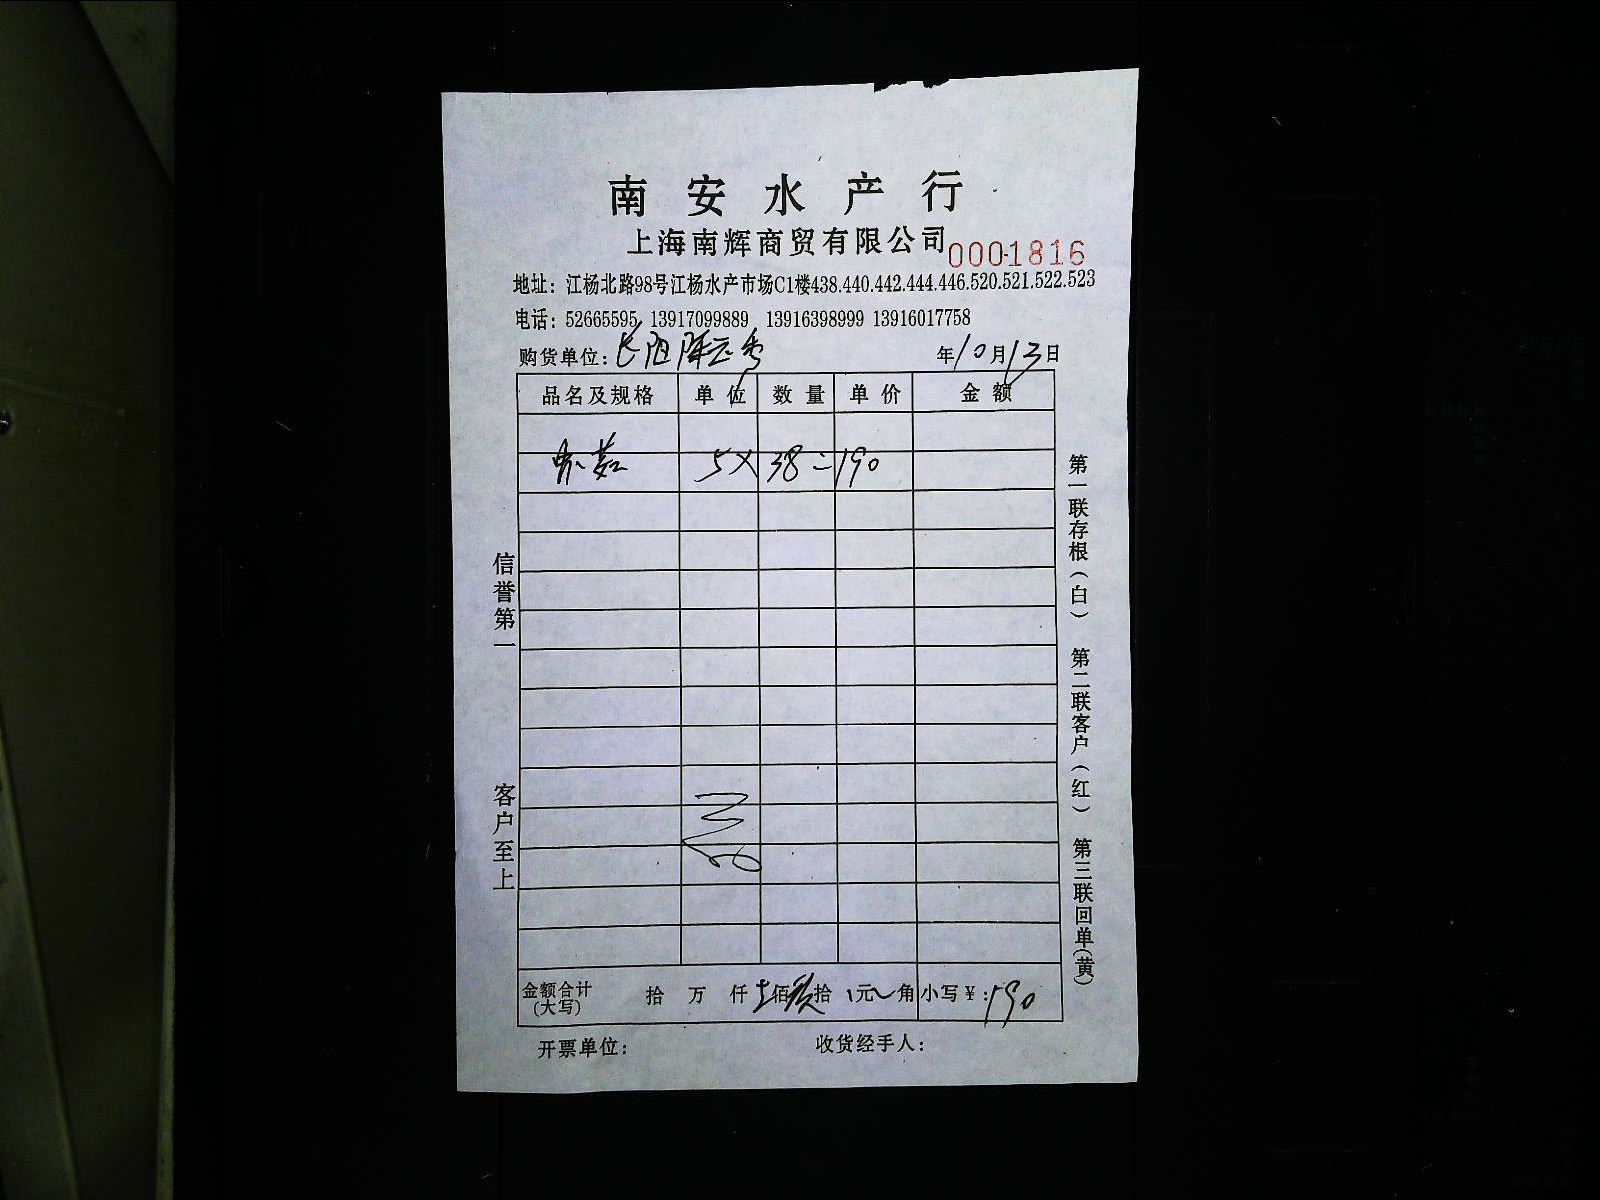 南安水产行
上海南辉商贸有限公司 0001816
地址：江杨北路98号江杨水产市场C1楼438.440.442.444.446.520.521.522.523
电话：52665595 13917099889 13916398999 13916017758
购货单位： 年10月13日
品名及规格 单位 数量 单价 金额
5×38=190
信誉第一 客户至上
第一联存根（白） 第二联客户（红） 第三联回单（黄）
金额合计（大写） 拾 万 仟 佰 玖拾 元 角 小写￥：190
开票单位： 收货经手人：